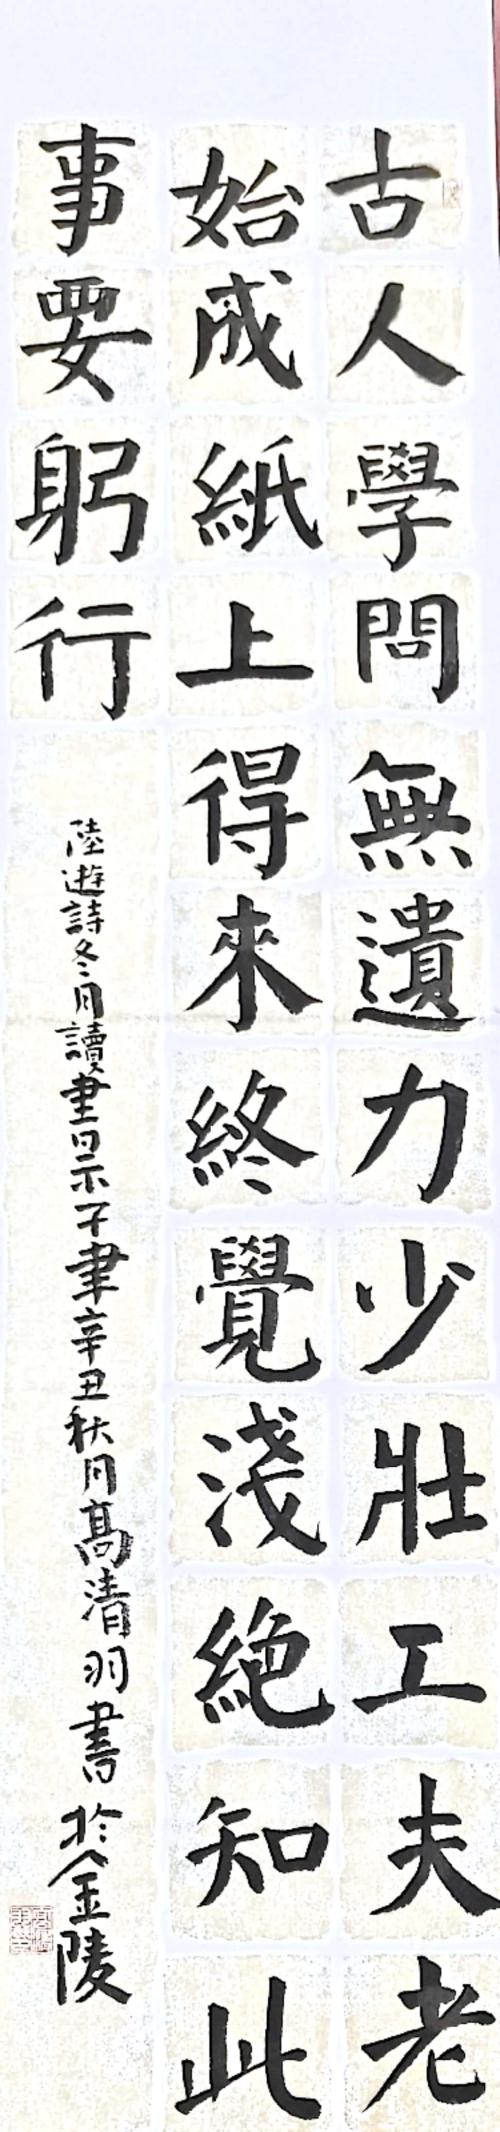 古人學問無遺力少壯工夫老
始成紙上得來終覺淺絕知此
事要躬行
陸遊詩冬月讀書日示子聿辛丑秋月高清羽書於金陵